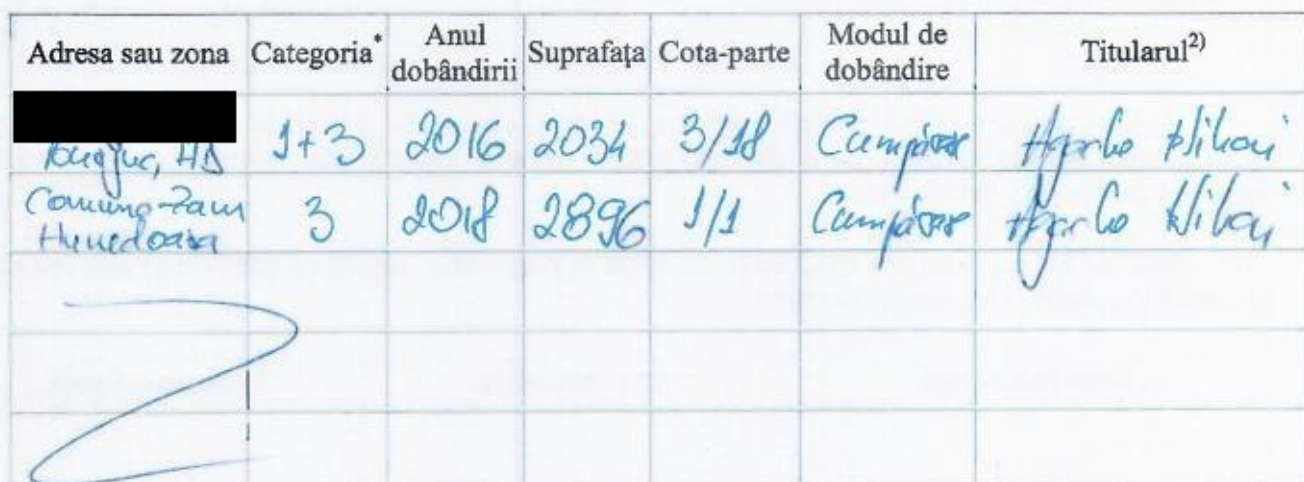 Adresa sau zona Categoria* Anul dobândirii Suprafața Cota-parte Modul de dobândire Titularul2)
HD 1+3 2016 2034 3/18 Cumpărare
Comuna Zam Hunedoara 3 2018 2896 1/1 Cumpărare